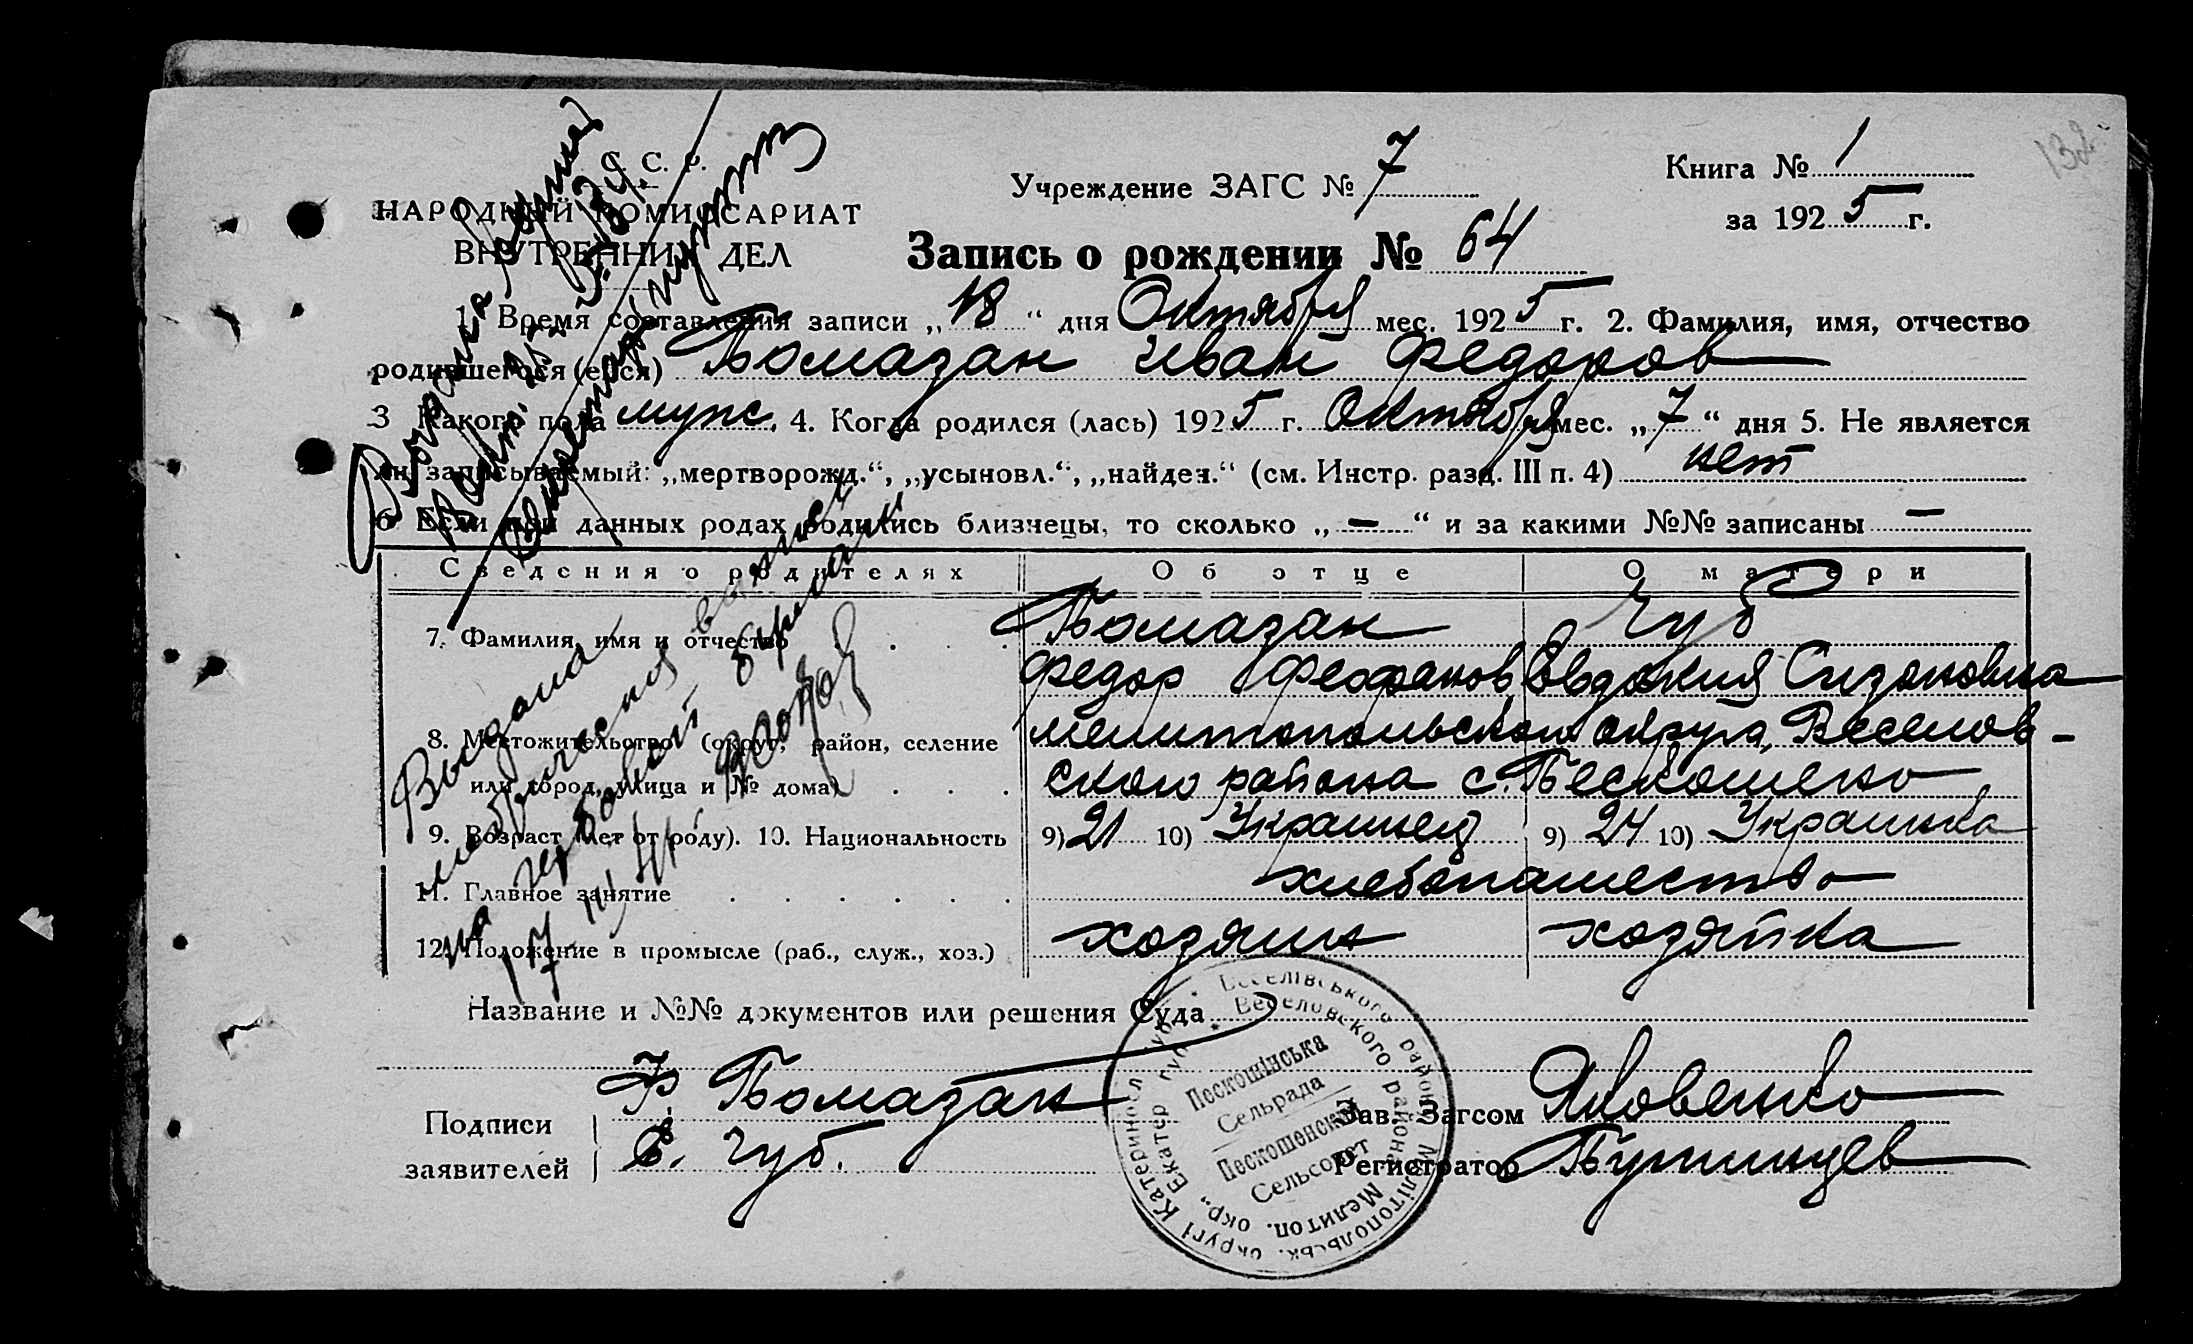 132
С. С. Р.
НАРОДНЫЙ КОМИССАРИАТ
ВНУТРЕННИХ ДЕЛ
Учреждение ЗАГС № 7
Книга № 1
за 1925 г.
Запись о рождении № 64
1. Время составления записи „18“ дня Октября мес. 1925 г. 2. Фамилия, имя, отчество
родившегося (ейся) Бомазан Иван Федоров
3 Какого пола мужс. 4. Когда родился (лась) 1925 г. Октября мес. „7“ дня 5. Не является
ли записываемый: „мертворожд.“, „усыновл.“, „найден.“ (см. Инстр. разд. III п. 4) нет
6 Если при данных родах родились близнецы, то сколько „—“ и за какими №№ записаны —
Сведения о родителях Об отце О матери
7. Фамилия, имя и отчество Бомазан Чуб
Федор Феофанов Евдокия Сизоновна
8. Местожительство (округ, район, селение Мелитопольского округа, Веселов-
или город, улица и № дома) ского района с. Бескошено
9. Возраст (лет от роду). 10. Национальность 9) 21 10) Украинец 9) 24 10) Украинка
11. Главное занятие хлебопашество
12. Положение в промысле (раб., служ., хоз.) хозяин хозяйка
Название и №№ документов или решения Суда
Подписи
заявителей
Ф. Бомазан
Е. Чуб.
Зав. Загсом Яковенко
Регистратор
Веселівського район. Мелітопольськ. округі Катериносл. губ.
Веселовского района Мелитоп. окр., Екатер губ.
Пескошінська
Сельрада
Пескошенский
Сельсовет
Выдана
на гербовой
17